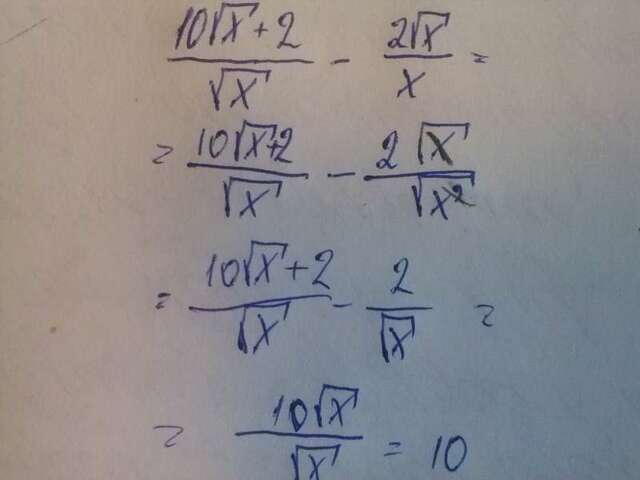 (10√x + 2)/√x - 2√x/x =
= (10√x+2)/√x - 2√x/√x²
= (10√x + 2)/√x - 2/√x =
= 10√x/√x = 10